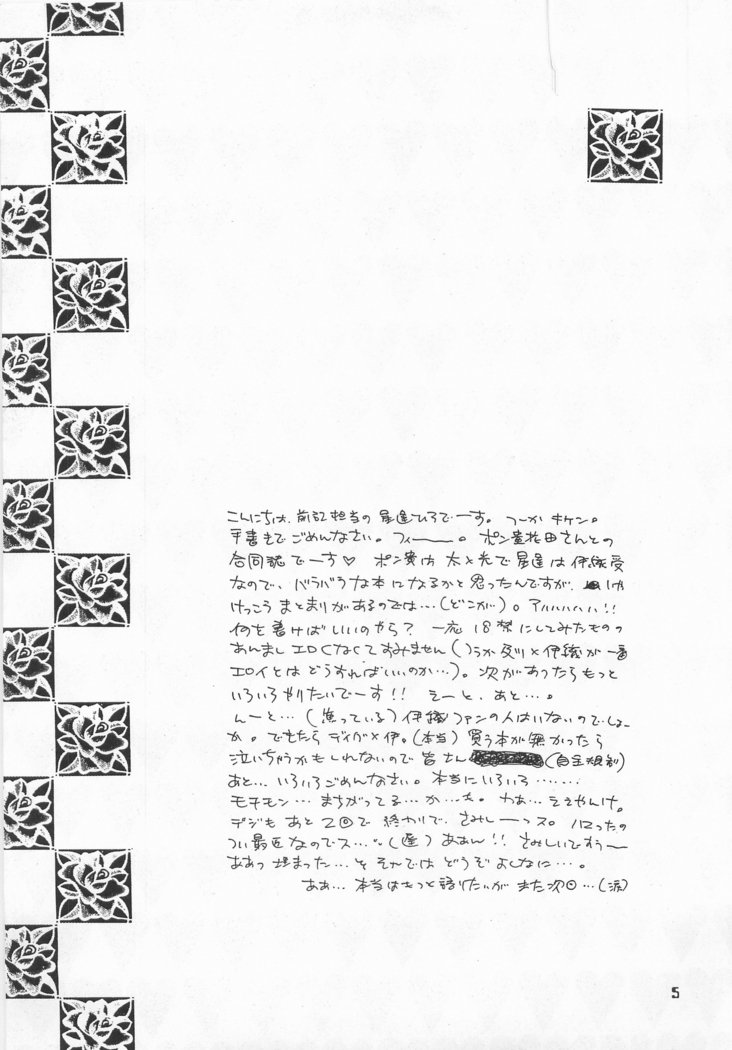 こんにちは、前記担当の星逢ひろでーす。つーかキケン。
手書きでごめんなさい。フィーー。ポン貴花田さんとの
合同誌でーす♡ ポン貴は太と光で星逢は伊織受
なので、バラバラな本になるかと思ったんですが、
けっこうまとまりがあるのでは…(どこが)。アハハハハハ!!
何を書けばいいのかしら? 一応18禁にしてみたものの
あんましエロくなくてすみません(つうか及川×伊織が一番
エロイとはどうすればいいのか…)。次があったらもっと
いろいろやりたいでーす!! えーと、あと…。
んーと…(焦っている)伊織ファンの人はいないのでしょー
か。できたらデイが×伊。(本当)買う本が無かったら
泣いちゃうかもしれないので皆さん(自主規制)
あと…いろいろごめんなさい。本当にいろいろ……
モチモン…まちがってる…か…も。わあ…ええやんけ。
デジもあと2回で終わりで、さみしーっス。ハマったの
つい最近なのでス…(遅)ああん!! さみしいですぅー
ああっ埋まった…とそれではどうぞよしなに…。
ああ…本当はもっと語りたいがまた次回…(涙)
5